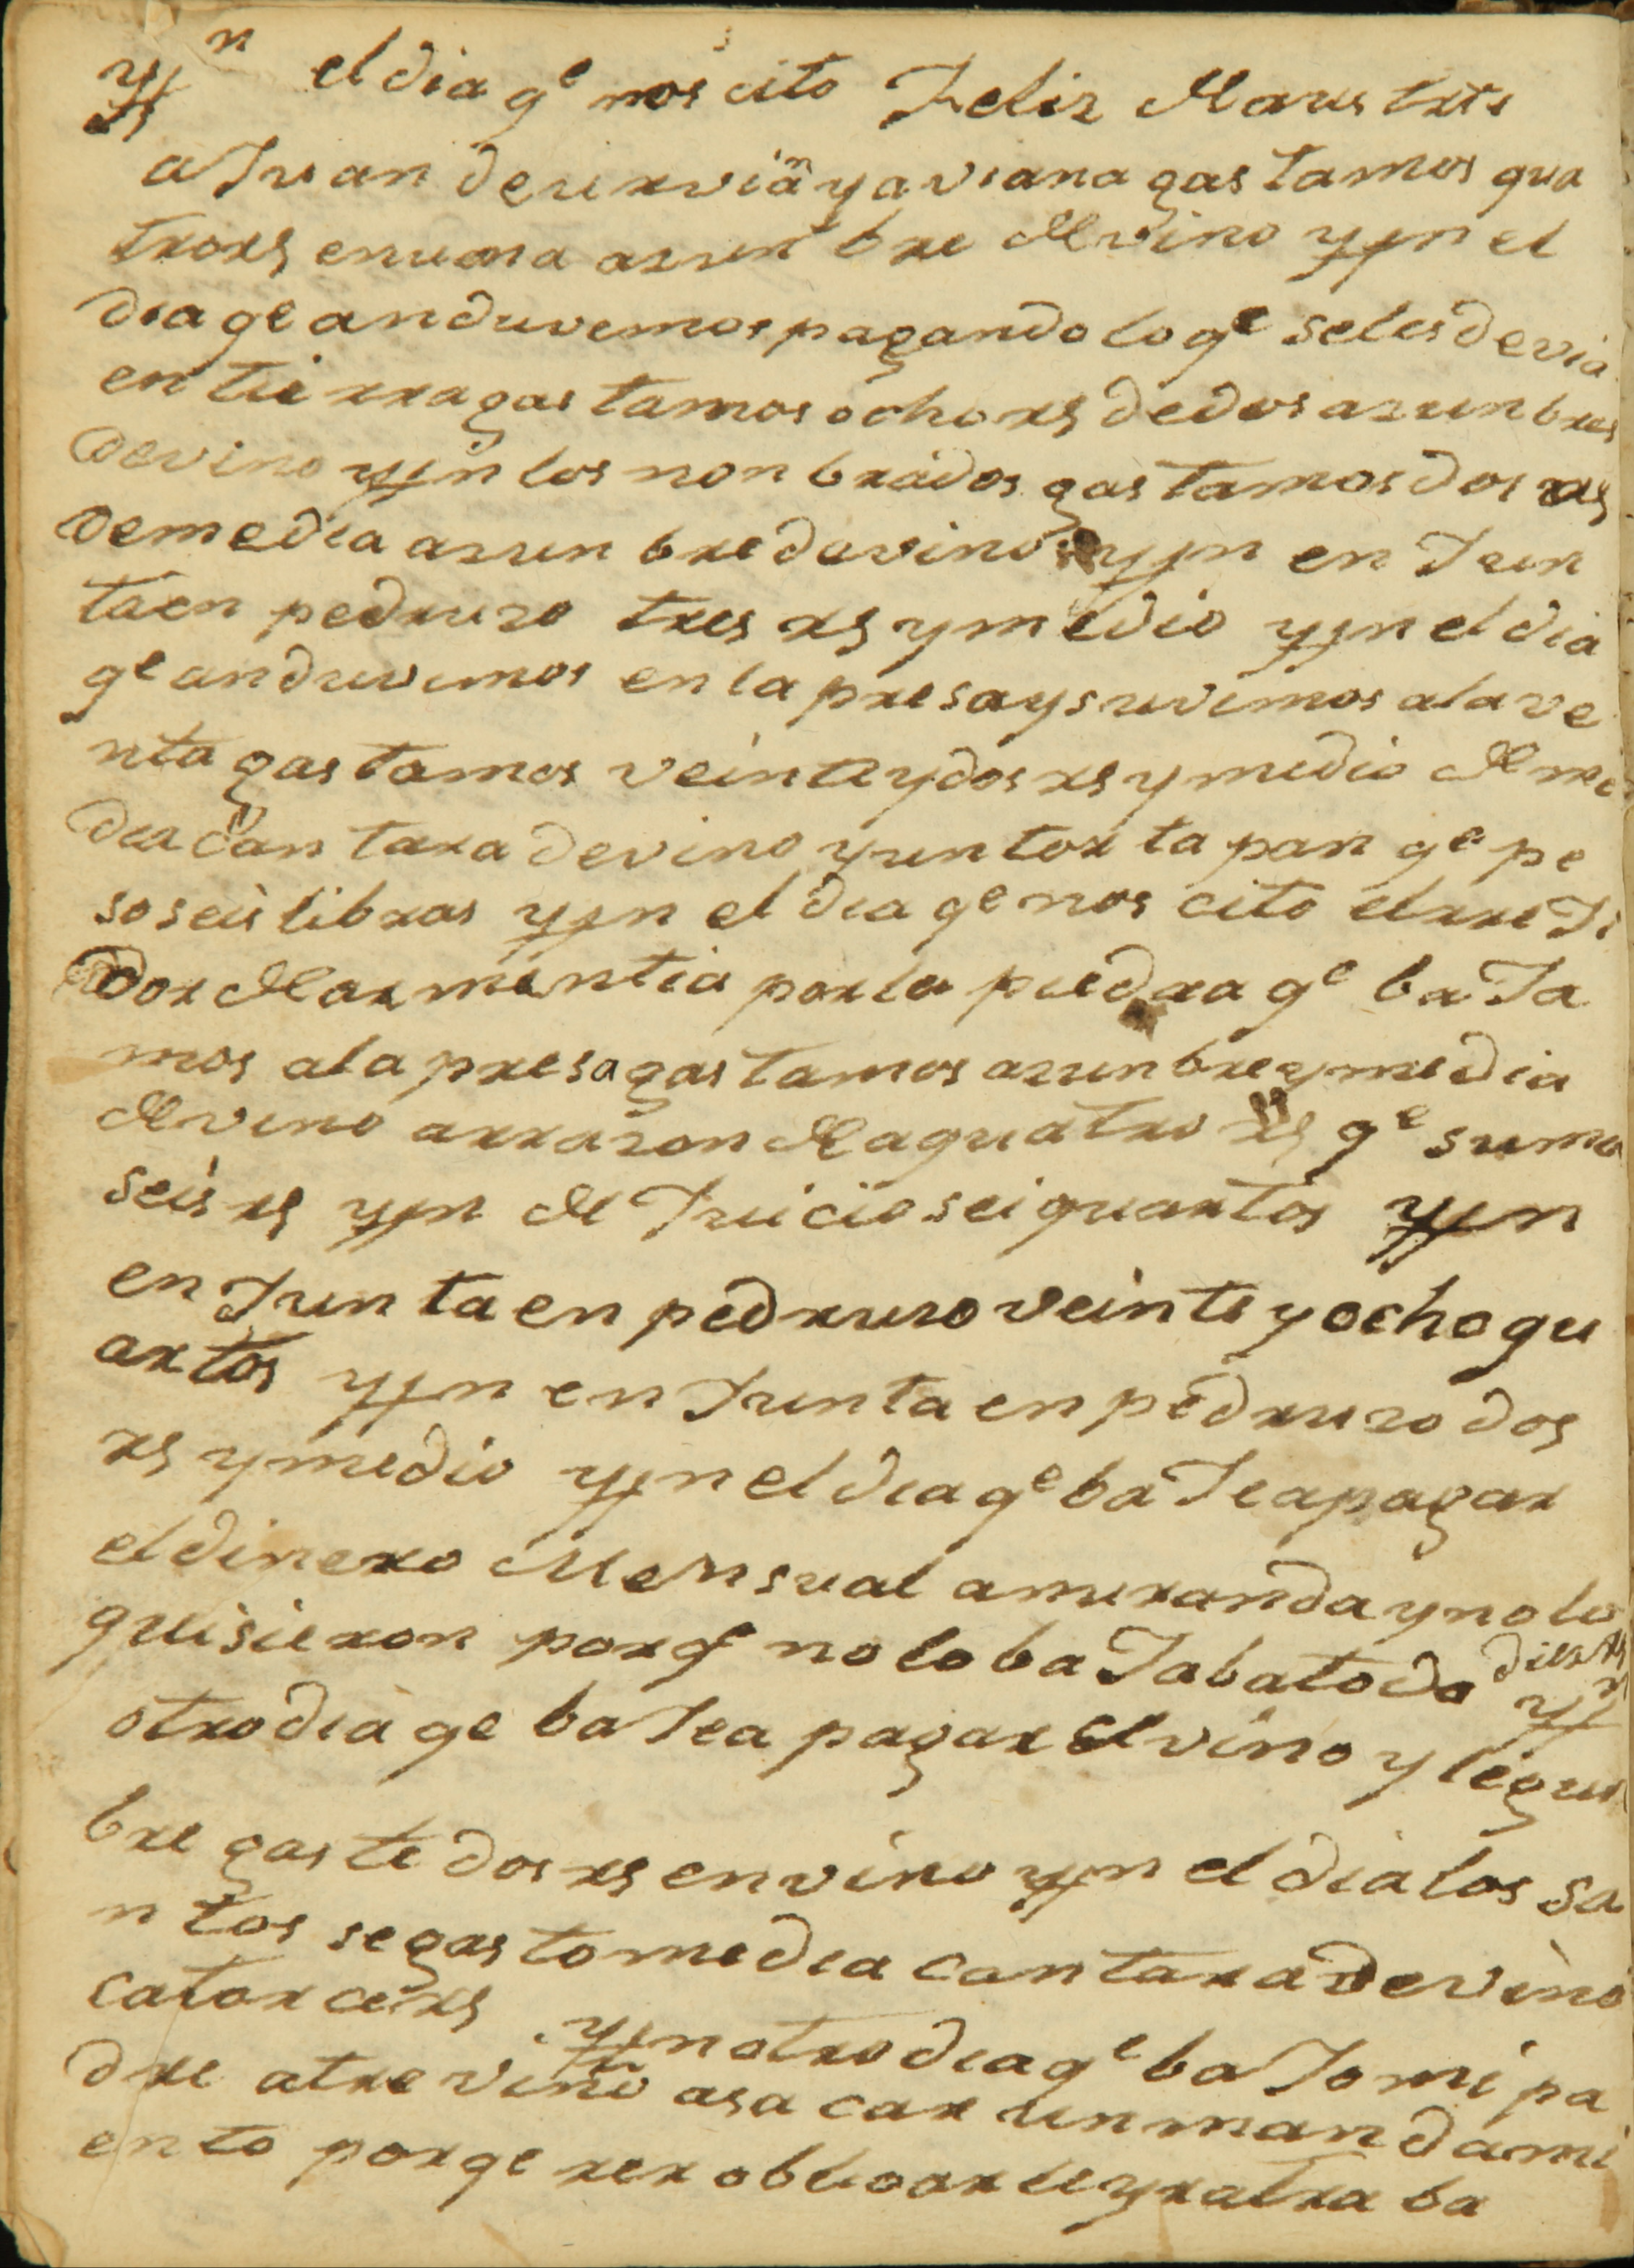 yn el dia qe nos cito Feliz
a Juan de urxvian y a viana gastamos qua
tro rs en una azunbre de vino yn el
dia qe anduvemos pagando lo qe seles devia
en tierra gastamos ocho rs de dos azunbres
de vino yn los nonbrados gastamos dos rs
de media azunbre de vino yn en Jun
ta en pedruzo tres rs y medio yn el dia
qe anduvimos en la presa y suvimos a la ve
nta gastamos veinte y dos rs y medio de me
dia cantara de vino y un torta pan qe pe
so seis libras yn el dia qe nos cito el rreJi
dor Marmentia por la piedra qe baJa
mos a la presa gastamos azunbre y media
de vino a rrazon de a quatro rs qe suma
seis rs yn de Juicio sei quartos yn
en Junta en pedruzo veinte y ocho qu
artos yn en Junta en pedruzo dos
rs y medio yn el dia qe baJe a pagar
el dinero Mensual a miranda y no lo
quisieron por qe no lo baJaba todo diez rs yn
otro dia qe baJe a pagar el vino y legun
bre gaste dos rs en vino yn el dia los Sa
ntos se gasto media cantara de vino
catorce rs yn otro dia qe baJo mi pa
dre a treviño a sacar un mandami
ento por qe rerobligarle y ratra ba